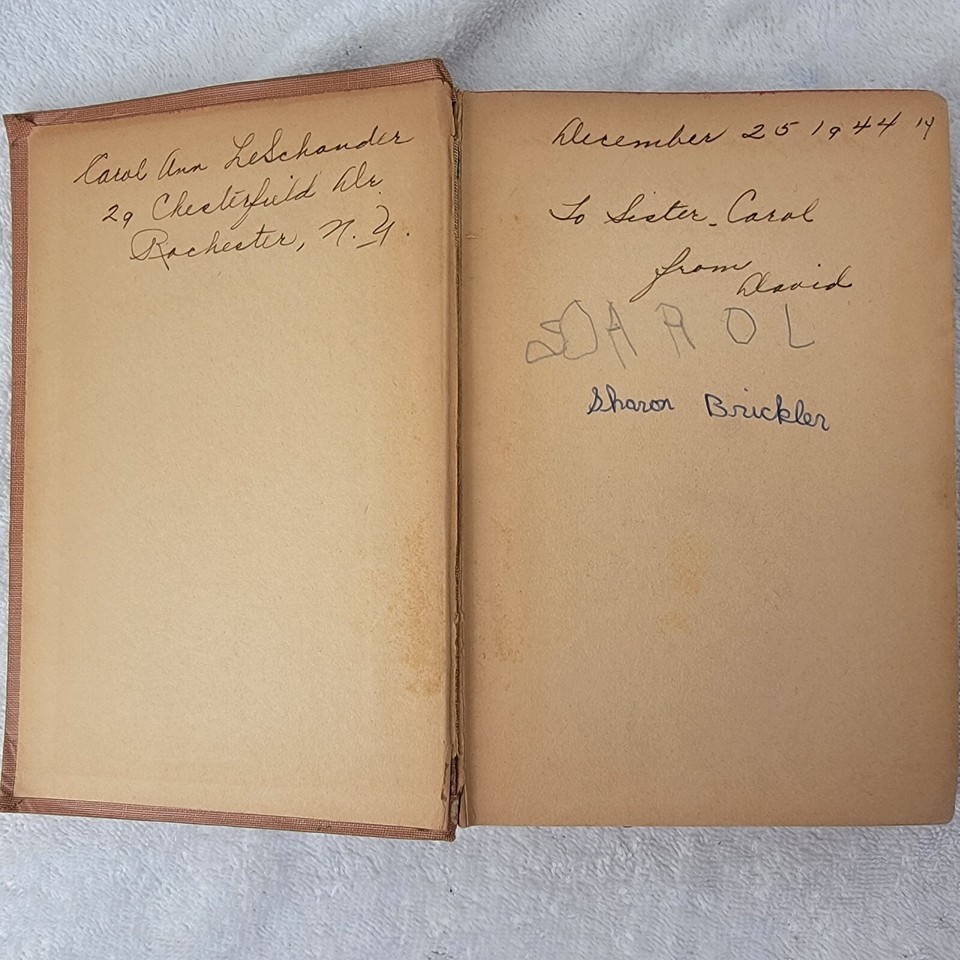 Carol Ann LeSchander
29 Chesterfield Dr.
Rochester, N.Y.
December 25 1944 14
To Sister Carol
from
David
CAROL
Sharon Brickler